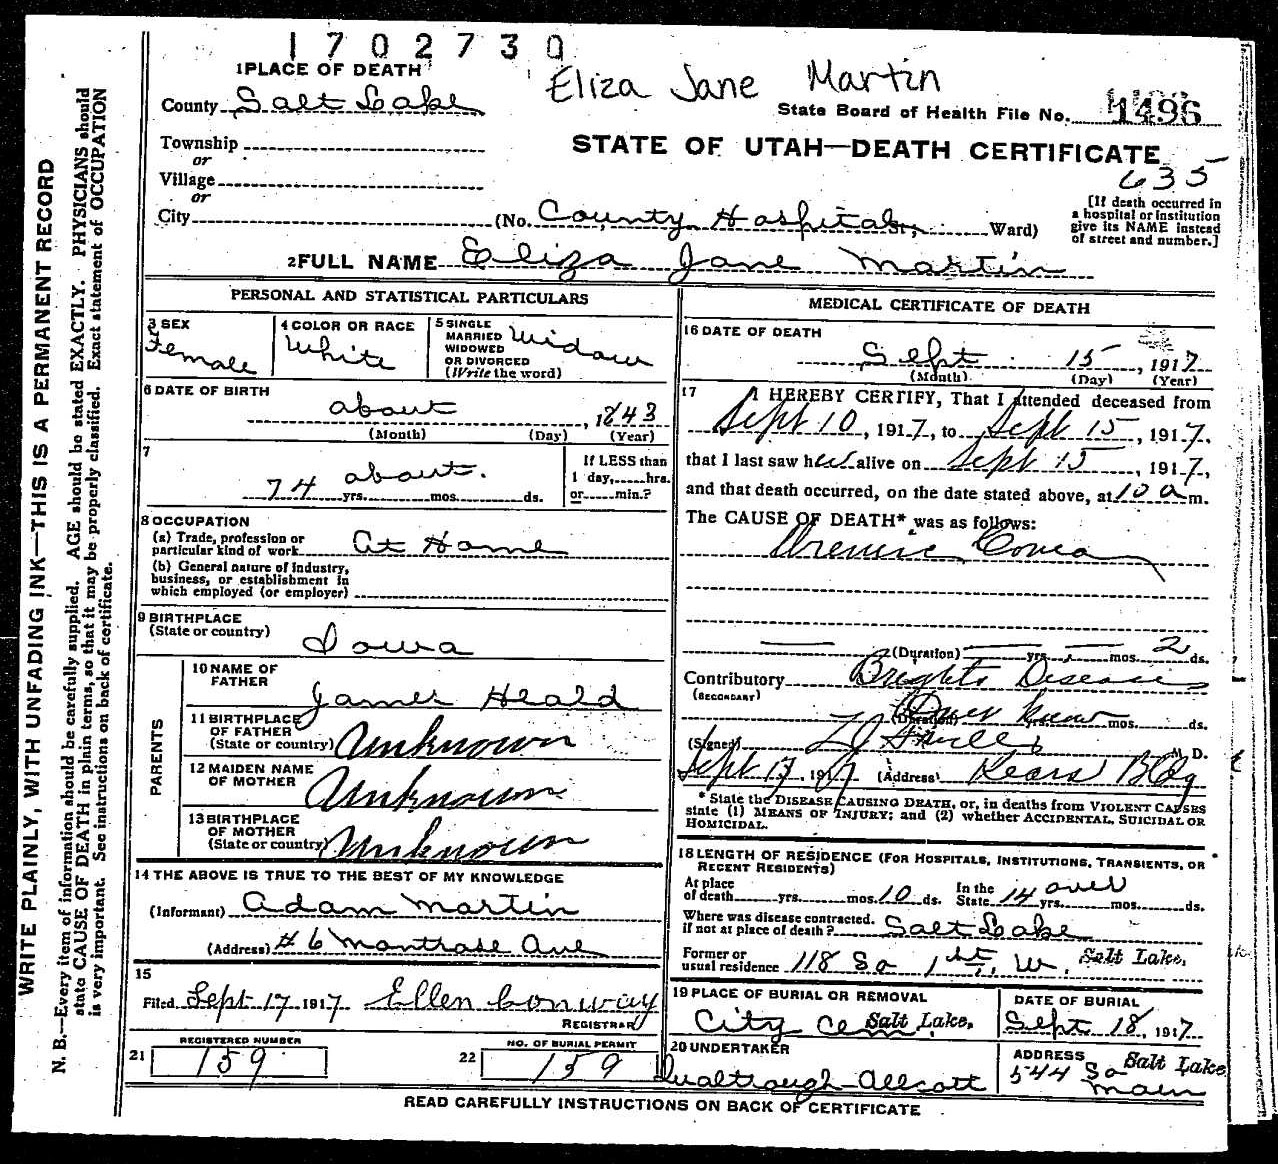 1702730
1 PLACE OF DEATH
Eliza Jane Martin
County Salt Lake
State Board of Health File No. 1496
Township
or
STATE OF UTAH—DEATH CERTIFICATE
635
Village
or
City (No. County Hospital, Ward)
[If death occurred in
a hospital or institution
give its NAME instead
of street and number.]
2 FULL NAME Eliza Jane Martin
PERSONAL AND STATISTICAL PARTICULARS
3 SEX
Female
4 COLOR OR RACE
White
5 SINGLE
MARRIED
WIDOWED
OR DIVORCED
(Write the word)
Widow
6 DATE OF BIRTH
about , 1843
(Month) (Day) (Year)
7
74 yrs. about. mos. ds.
If LESS than
1 day, hrs.
or min.?
8 OCCUPATION
(a) Trade, profession or
particular kind of work At Home
(b) General nature of industry,
business, or establishment in
which employed (or employer)
9 BIRTHPLACE
(State or country) Iowa
PARENTS
10 NAME OF
FATHER James Heald
11 BIRTHPLACE
OF FATHER
(State or country) Unknown
12 MAIDEN NAME
OF MOTHER Unknown
13 BIRTHPLACE
OF MOTHER
(State or country) Unknown
14 THE ABOVE IS TRUE TO THE BEST OF MY KNOWLEDGE
(Informant) Adam Martin
(Address) # 6 Montrose Ave
15
Filed Sept 17 1917 Ellen Conway
REGISTRAR
21 REGISTERED NUMBER
159
22 NO. OF BURIAL PERMIT
159
MEDICAL CERTIFICATE OF DEATH
16 DATE OF DEATH
Sept 15, 1917
(Month) (Day) (Year)
17 I HEREBY CERTIFY, That I attended deceased from
Sept 10, 1917, to Sept 15, 1917,
that I last saw her alive on Sept 15, 1917,
and that death occurred, on the date stated above, at 10 a m.
The CAUSE OF DEATH* was as follows:
Uremic Coma
(Duration) yrs. mos. 2 ds.
Contributory Brights Disease
(SECONDARY)
(Duration) know mos. ds.
(Signed) M. D.
Sept 17, 1917 (Address) Kearns Bldg
* State the DISEASE CAUSING DEATH, or, in deaths from VIOLENT CAUSES
state (1) MEANS OF INJURY; and (2) whether ACCIDENTAL, SUICIDAL OR
HOMICIDAL.
18 LENGTH OF RESIDENCE (FOR HOSPITALS, INSTITUTIONS, TRANSIENTS, OR
RECENT RESIDENTS)
At place
of death yrs. mos. 10 ds.
In the
State 14 yrs. over mos. ds.
Where was disease contracted.
if not at place of death? Salt Lake
Former or
usual residence 118 So 1st, W. Salt Lake,
19 PLACE OF BURIAL OR REMOVAL
City Cem, Salt Lake,
DATE OF BURIAL
Sept 18, 1917
20 UNDERTAKER
ADDRESS
544 So Main
Salt Lake
READ CAREFULLY INSTRUCTIONS ON BACK OF CERTIFICATE
WRITE PLAINLY, WITH UNFADING INK—THIS IS A PERMANENT RECORD
N. B.—Every item of information should be carefully supplied. AGE should be stated EXACTLY. PHYSICIANS should
state CAUSE OF DEATH in plain terms, so that it may be properly classified. Exact statement of OCCUPATION
is very important. See instructions on back of certificate.